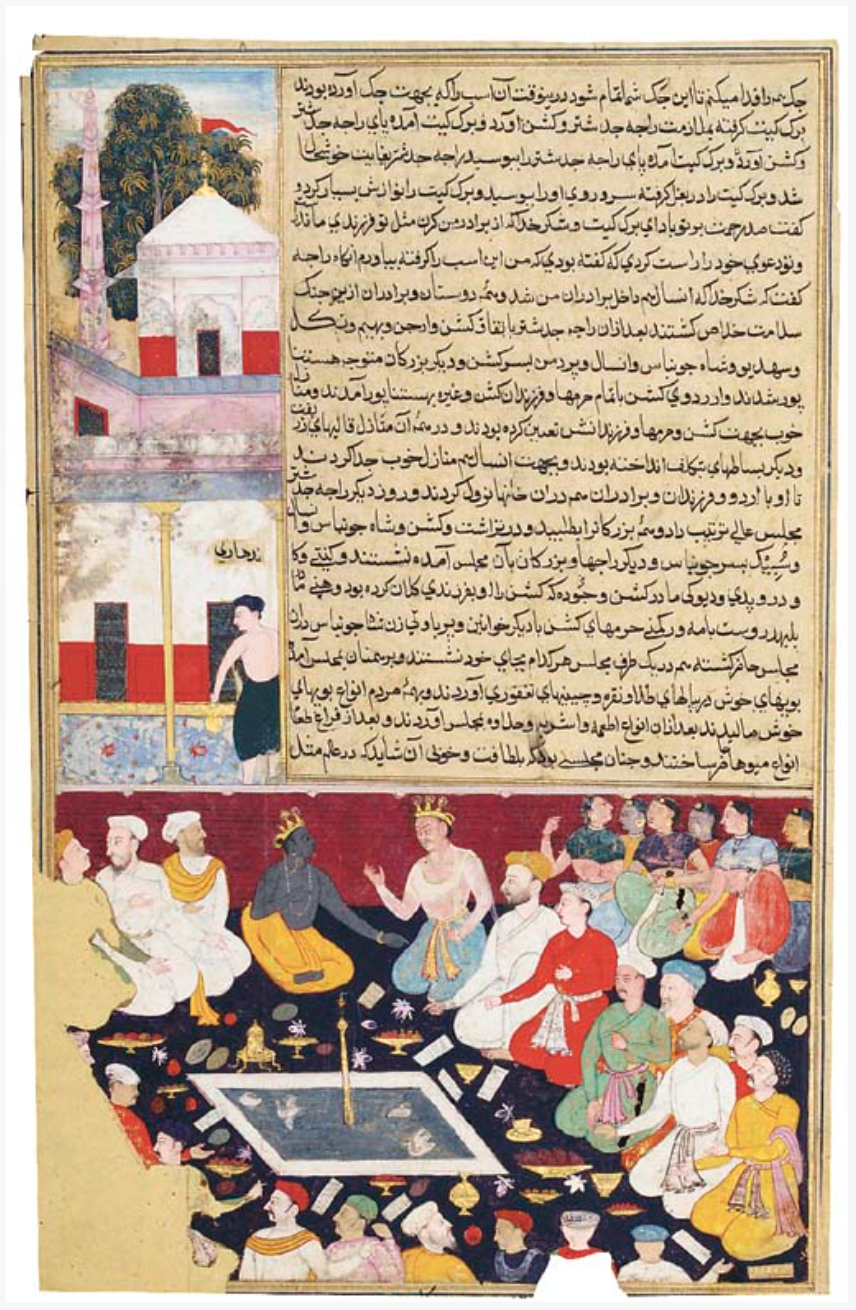 جک همه را فدا میکنم تا این جک شما تمام شود درینوقت آن اسب را که بجهت جک آورده بودند
برک کیت کرفته بملازمت راجه جدشتر و کشن آورد و برک کیت آمده پای راجه جدشتر
و کشن آورد و برک کیت آمده پای راجه جدشتر را ببوسید راجه جدشتر بغایت خوشحال
شد و برک کیت را در بغل کرفته سر و روی او را ببوسید و برک کیت را نوازش بسیار کرد و
کفت صد رحمت بر تو باد ای برک کیت و شکر خدا که از برادر من کرن مثل تو فرزندی ماند
و تو دعوی خود را راست کردی که کفته بودی که من این اسب را کرفته بیاورم آنکاه راجه
کفت که شکر خدا که انسال هم داخل برادران من شد و همه دوستان و برادران ازین جنک
سلامت خلاص کشتند بعد ازان راجه جدشتر باتفاق کشن و ارجن و بهیم و نکل
و سهدیو و شاه جوبناس و انسال و پردمن پسر کشن و دیکر بزرکان متوجه هستنا
پور شدند و اردوی کشن با تمام حرمها و فرزندان کشن و غیره بهستناپور آمدند و منازل
خوب بجهت کشن و حرمها و فرزندانش تعین کرده بودند و در همه آن منازل قالیهای زربفت
و دیکر بساطهای بتکلف انداخته بودند و بجهت انسال هم منازل خوب جدا کردند
تا او با اردو و فرزندان و برادران هم دران خانها نزول کردند و روز دیکر راجه جدشتر
مجلس عالی ترتیب داد و همه بزرکانرا بطلبید و دریتراشت و کشن و شاه جوبناس و انسال
و پسر جوبناس و دیکر راجها و بزرکان بآن مجلس آمده نشستند و کنتی و کا
ندهاری
و دروپدی و دیوکی مادر کشن و که کشن را او بفرزندی کلان کرده بود و
و رکمنی حرمهای کشن با دیکر خواتین و زن شاه جوبناس دران
مجلس حاضر کشته هم در یک طرف مجلس هر کدام بجای خود نشستند و برهمنان بمجلس آمد
بویهای خوش در پیالهای طلا و نقره و چینیهای فغفوری آوردند و همه مردم انواع بویهای
خوش مالیدند بعد ازان انواع اطعمه و اشربه و حلاوه بمجلس آوردند و بعد از فراغ طعام
انواع میوها حاضر ساختند و چنان مجلسی بود که بلطافت و خوبی آن شاید که در عالم مثل